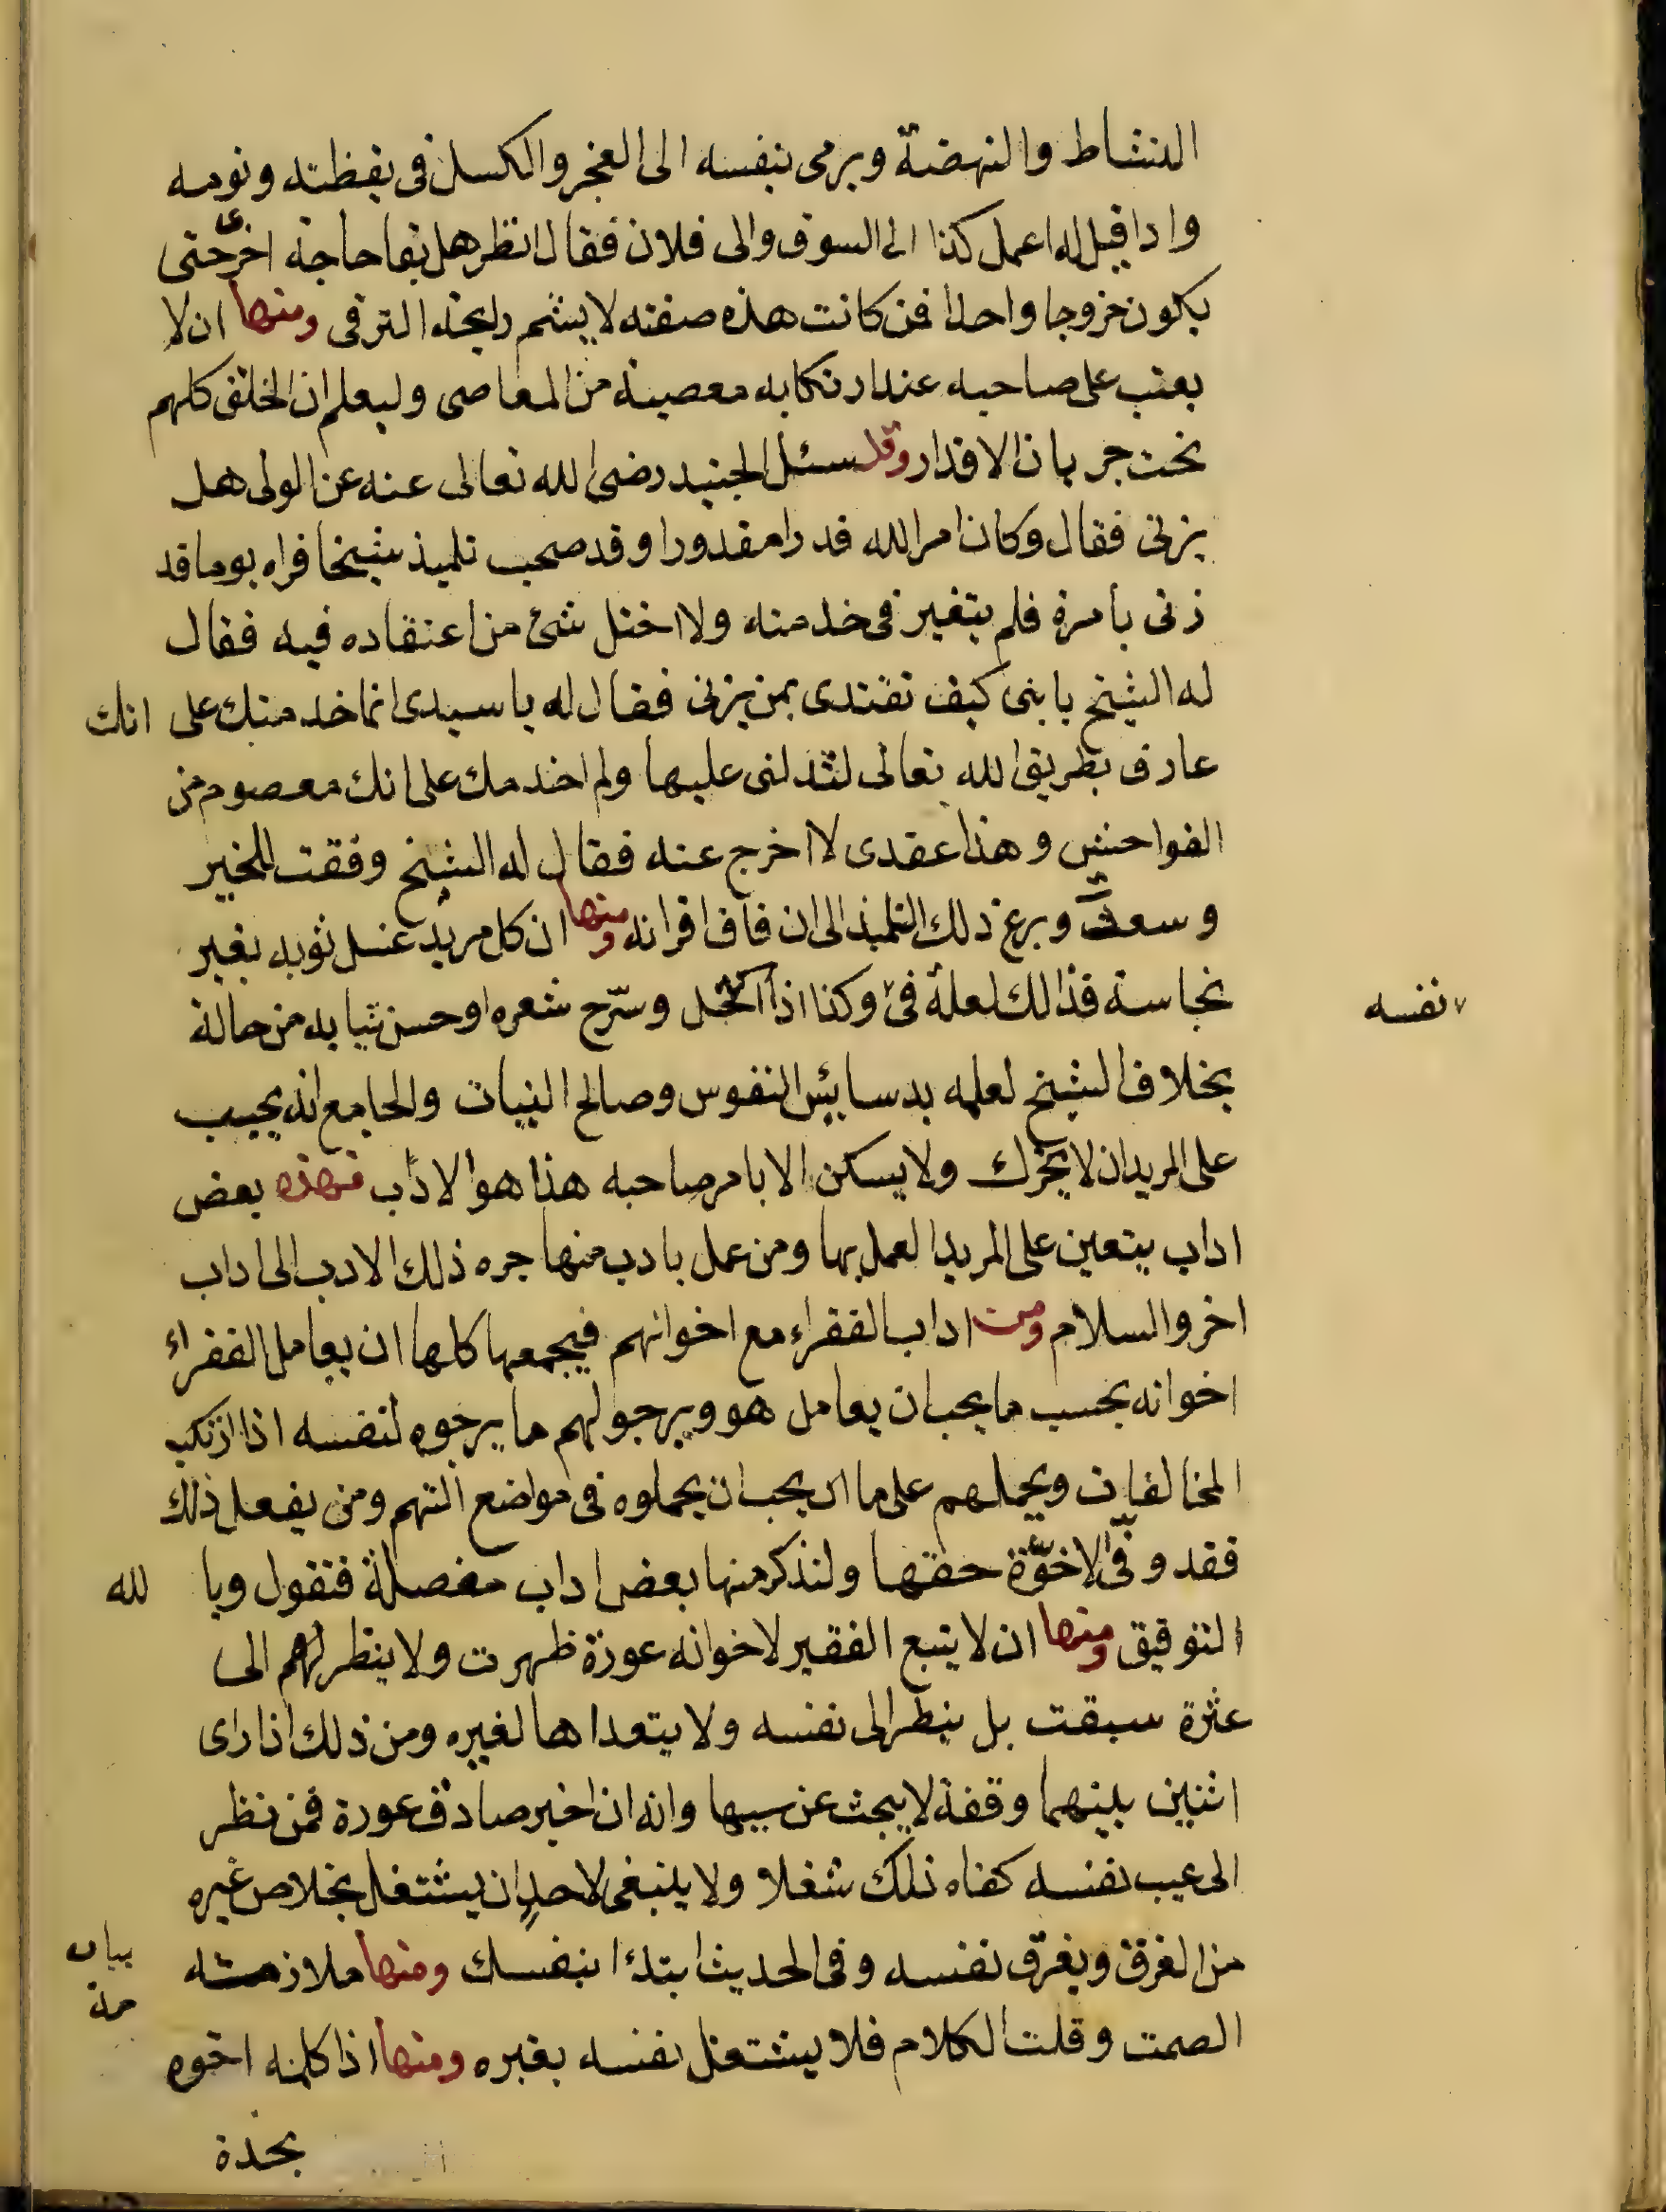 النشاط والنهضة ويرمى بنفسه الى العجز والكسل فى يقظته ونومه
واذا قيل له اعمل كذا الى السوق والى فلان فقال انظر هل بقا حاجة اخرى حتى
يكون خروجا واحدا فمن كانت هذه صفته لا يشم رايحة الترقى ومنها ان لا
يعتب على صاحبه عند ارتكابه معصية من المعاصى وليعلم ان الخلق كلهم
تحت جريان الاقدار وقد سئل الجنيد رضى الله تعالى عنه عن الولى هل
يزنى فقال وكان امر الله قدرا مقدورا وقد صحب تلميذ شيخا فراه يوما قد
زنى بامرة فلم يتغير فى خدمته ولا اختل شئ من اعتقاده فيه فقال
له الشيخ يا بنى كيف تقتدى بمن يزنى فقال له يا سيدى انما خدمتك على انك
عارف بطريق الله تعالى لتدلنى عليها ولم اخدمك على انك معصوم من
الفواحش وهذا عقدى لا اخرج عنه فقال له الشيخ وفقت للخير
وسعدت وبرع ذلك التلميذ الى ان فاق اقرانه ومنها ان كل مريد غسل ثوبه بغير
نجاسة فذالك لعلة فى وكذا اذا اكتحل وسرّح شعره او حسن ثيابه من حالة
نفسه
بخلاف الشيخ لعلمه بدسايس النفوس وصالح النيات والجامع انه يجب
على المريد ان لا يتحرك ولا يسكن الا بامر صاحبه هذا هو الادب فهذه بعض
اداب يتعين على المريد العمل بها ومن عمل بادب منها جره ذلك الادب الى اداب
اخر والسلام ومن اداب الفقراء مع اخوانهم فيجمعها كلها ان يعامل الفقراء
اخوانه بحسب ما يحب ان يعامل هو ويرجو لهم ما يرجوه لنفسه اذا ارتكب
المخالفات ويحملهم على ما ان يحب ان يحملوه فى مواضع التهم ومن يفعل ذلك
فقد وفى الاخوّة حقها ولنذكر منها بعض اداب مفصلة فنقول وبا لله
التوفيق ومنها ان لا يتبع الفقير لاخوانه عورة ظهرت ولا ينظر لهم الى
عثرة سبقت بل ينظر الى نفسه ولا يتعداها لغيره ومن ذلك اذا راى
اثنين بينهما وقفة لا يبحث عن سببها وانه ان اخبر صادف عورة فمن نظر
الى عيب نفسه كفاه ذلك شغلا ولا ينبغى لاحد ان يشتغل بخلاص غيره
من الغرق ويغرّق نفسه وفى الحديث ابتدءا بنفسك ومنها ملازمته
الصمت وقلت الكلام فلا يشتغل نفسه بغيره ومنها اذا كلمه اخوه
بحدة